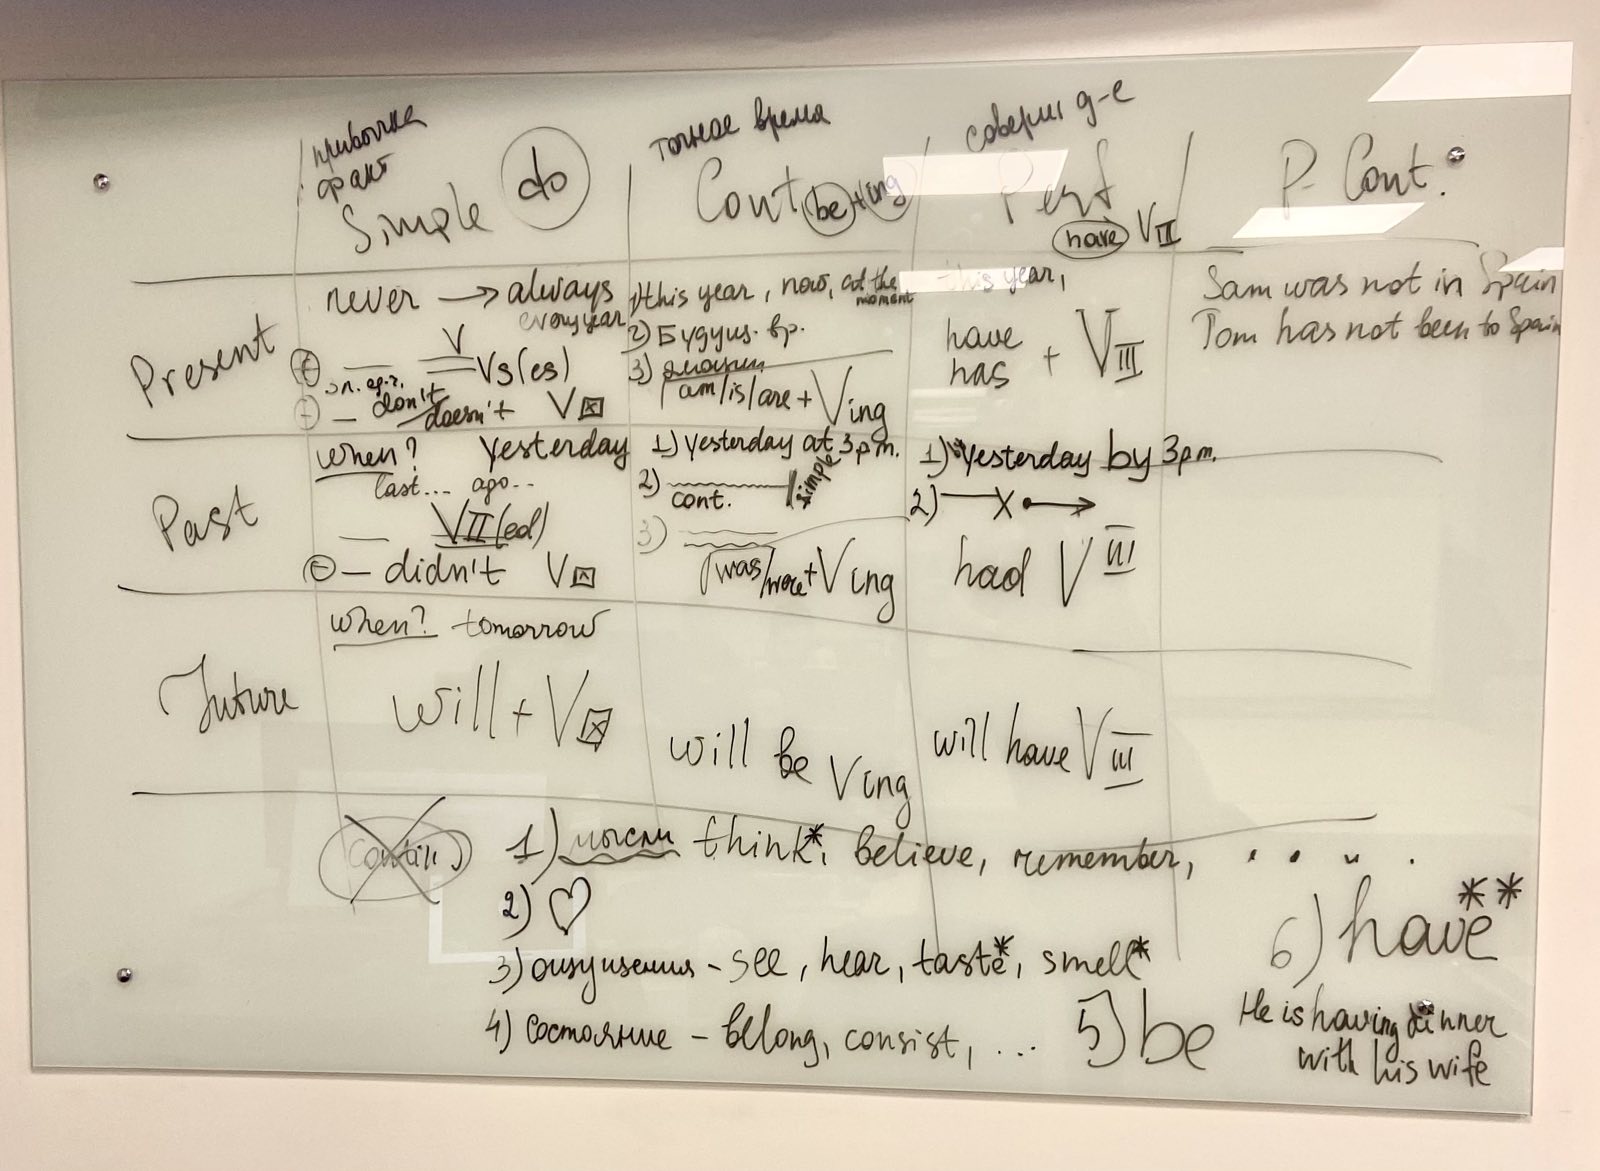 привычка точное время соверш. д-е
факт
Simple do Cont be+ing Perf P-Cont.
have VIII
Present
never → always
every year
V
⊕ Vs(es)
⊖ — don't/doesn't V
1) this year, now, at the moment
2) Будущ. вр.
3) эмоции
am/is/are + Ving
this year,
have
has + VIII
Sam was not in Spain
Tom has not been to Spain
Past
When? Yesterday
last... ago..
VII(ed)
⊖ — didn't V
1) Yesterday at 3pm.
2) cont. simple
3)
was/were + Ving
1) Yesterday by 3pm.
2) — X •→
had VIII
Future
When? tomorrow
Will + V
will be Ving
will have VIII
Contin
1) мысли think*, believe, remember, . . . .
2) ♡
3) ощущения - see, hear, taste*, smell*
4) состояние - belong, consist, ...
5) be
6) have**
He is having dinner
with his wife